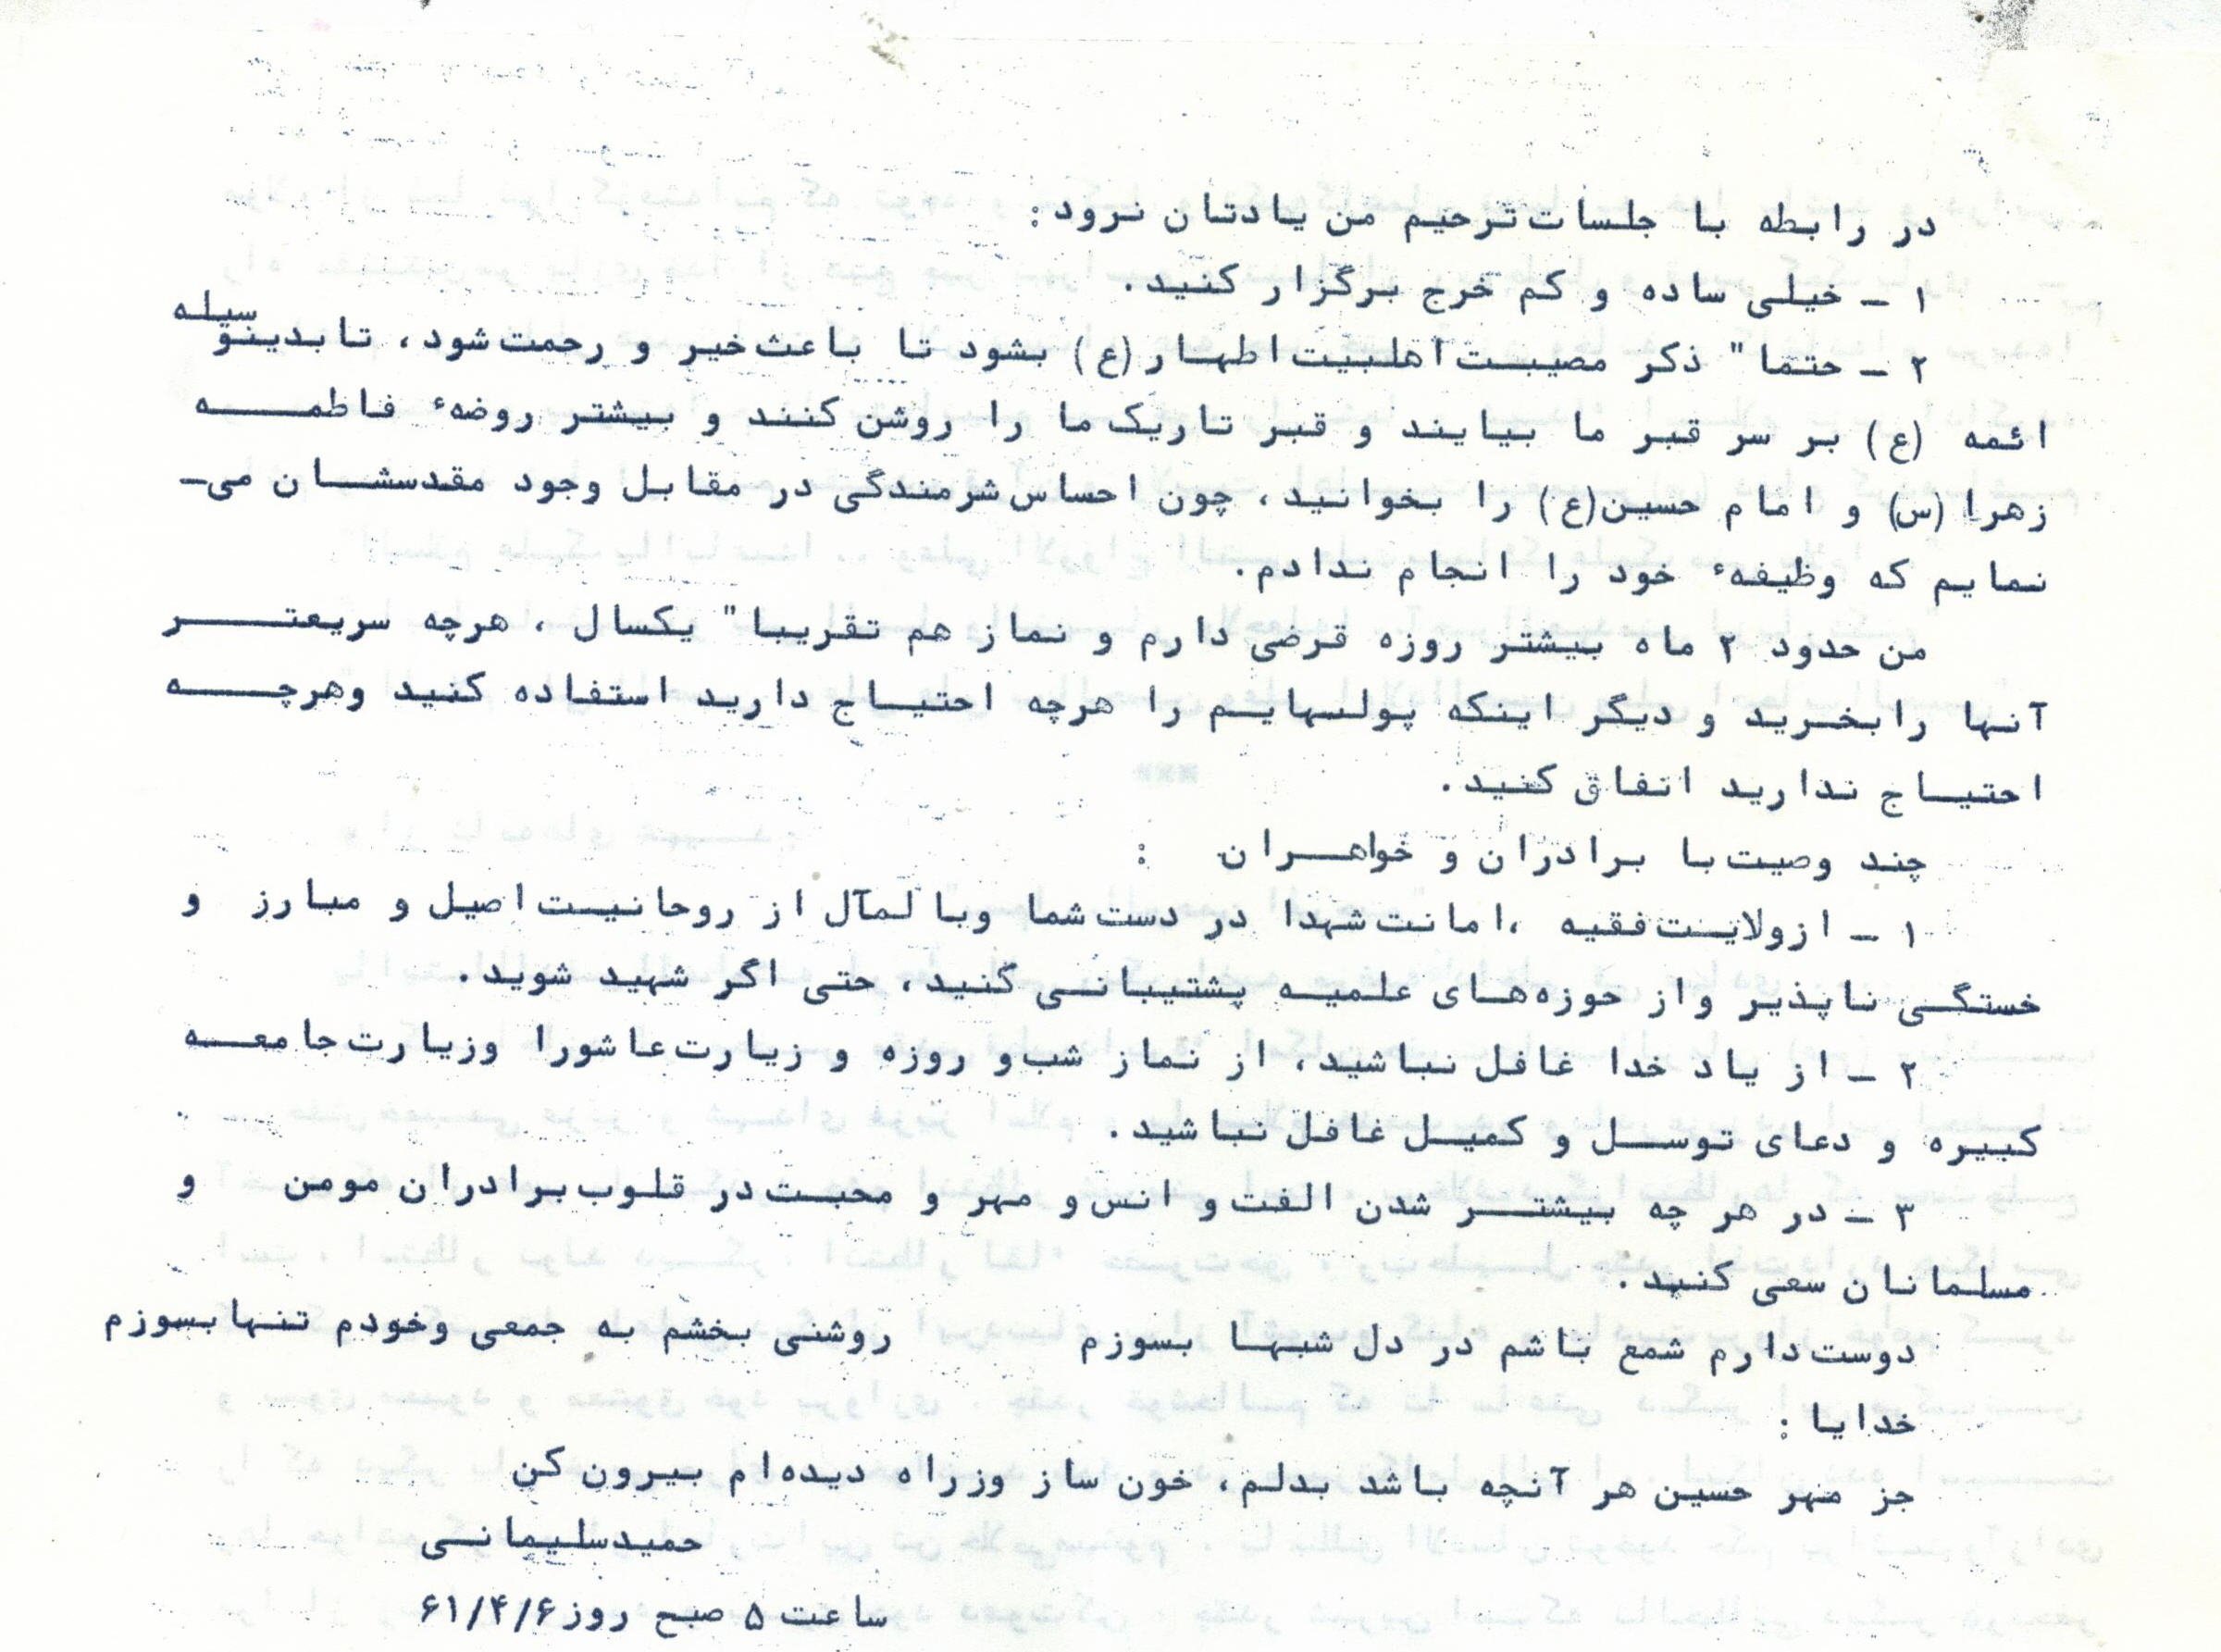 در رابطه با جلسات ترحیم من یادتان نرود:
۱ - خیلی ساده و کم خرج برگزار کنید.
۲ - حتما" ذکر مصیبت اهلبیت اطهار (ع) بشود تا باعث خیر و رحمت شود، تا بدینوسیله
ائمه (ع) بر سر قبر ما بیایند و قبر تاریک ما را روشن کنند و بیشتر روضهٔ فاطمه
زهرا (س) و امام حسین (ع) را بخوانید، چون احساس شرمندگی در مقابل وجود مقدسشان می-
نمایم که وظیفهٔ خود را انجام ندادم.
من حدود ۲ ماه بیشتر روزه قرضی دارم و نماز هم تقریبا" یکسال، هرچه سریعتر
آنها را بخرید و دیگر اینکه پولهایم را هرچه احتیاج دارید استفاده کنید وهرچه
احتیاج ندارید انفاق کنید.
چند وصیت با برادران و خواهران :
۱ - از ولایت فقیه ،امانت شهدا در دست شما وبالمآل از روحانیت اصیل و مبارز و
خستگی ناپذیر واز حوزه‌های علمیه پشتیبانی کنید، حتی اگر شهید شوید.
۲ - از یاد خدا غافل نباشید، از نماز شب و روزه و زیارت عاشورا وزیارت جامعه
کبیره و دعای توسل و کمیل غافل نباشید.
۳ - در هر چه بیشتر شدن الفت و انس و مهر و محبت در قلوب برادران مومن و
مسلمانان سعی کنید.
دوست دارم شمع باشم در دل شبها بسوزم روشنی بخشم به جمعی وخودم تنها بسوزم
خدایا :
جز مهر حسین هر آنچه باشد بدلم، خون ساز وزراه دیده‌ام بیرون کن
حمید سلیمانی
ساعت ۵ صبح روز ۶۱/۴/۶